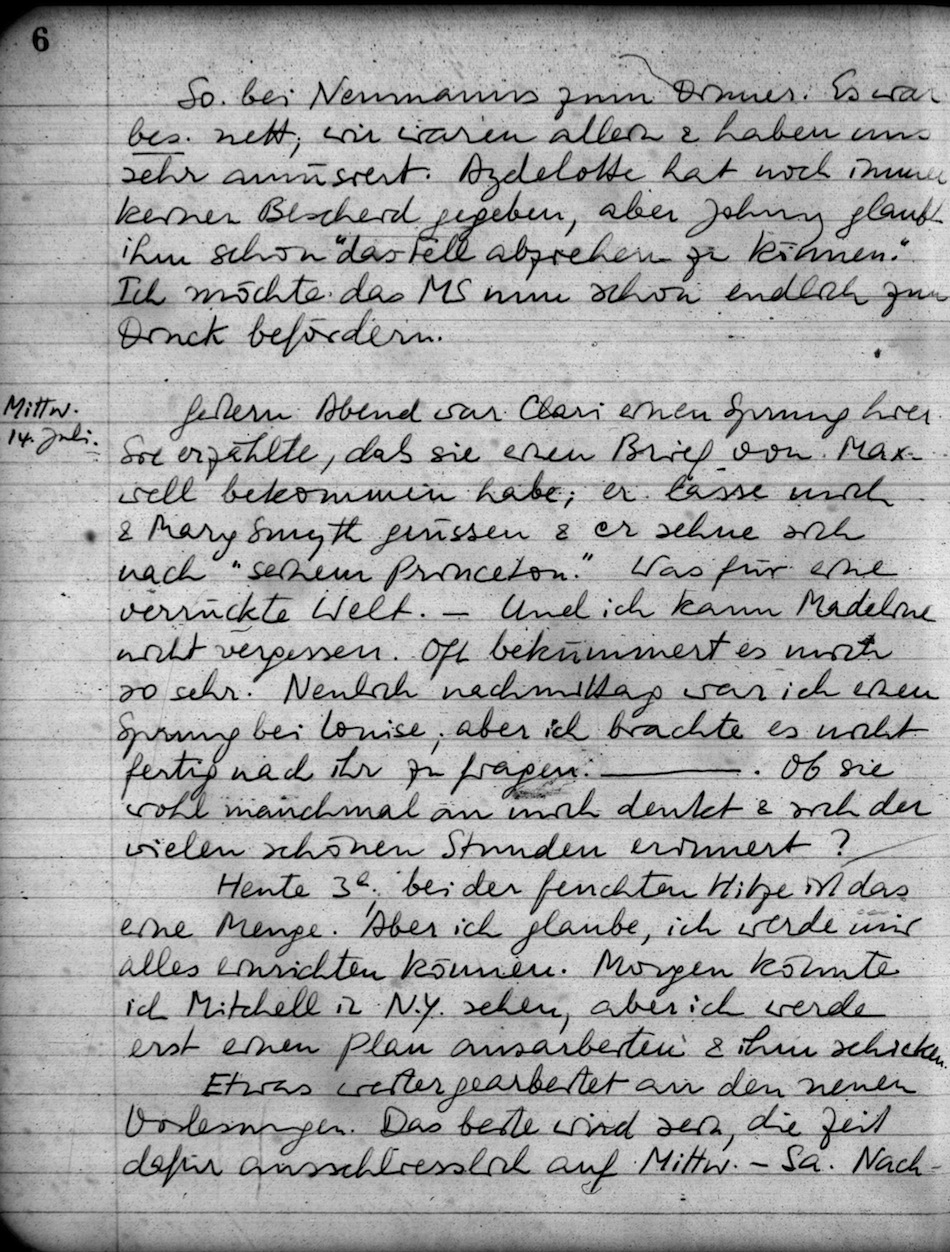 6
So. bei Neumanns zum Dinner. Es war
bes. nett; wir waren allein & haben uns
sehr amüsiert. Aydelotte hat noch immer
keinen Bescheid gegeben, aber Johnny glaubt
ihm schon "das Fell abziehen zu können."
Ich möchte das MS nun schon endlich zum
Druck befördern.
Mittw.
14. Juli.
Gestern Abend war Clari einen Sprung hier.
Sie erzählte, daß sie einen Brief von Max-
well bekommen habe; er lasse mich
& Mary Smyth grüssen & er sehne sich
nach "seinem Princeton." Was für eine
verrückte Welt. — Und ich kann Madeline
nicht vergessen. Oft bekümmert es mich
so sehr. Neulich nachmittag war ich einen
Sprung bei Louise, aber ich brachte es nicht
fertig nach ihr zu fragen. ———. Ob sie
wohl manchmal an mich denkt & sich der
vielen schönen Stunden erinnert?
Heute 3 bei der feuchten Hitze ist das
eine Menge. Aber ich glaube, ich werde mir
alles einrichten können. Morgen könnte
ich Mitchell in N.Y. sehen, aber ich werde
erst einen Plan ausarbeiten & ihm schicken.
Etwas weitergearbeitet an den neuen
Vorlesungen. Das beste wird sein, die Zeit
dafür ausschliesslich auf Mittw. – Sa. Nach-